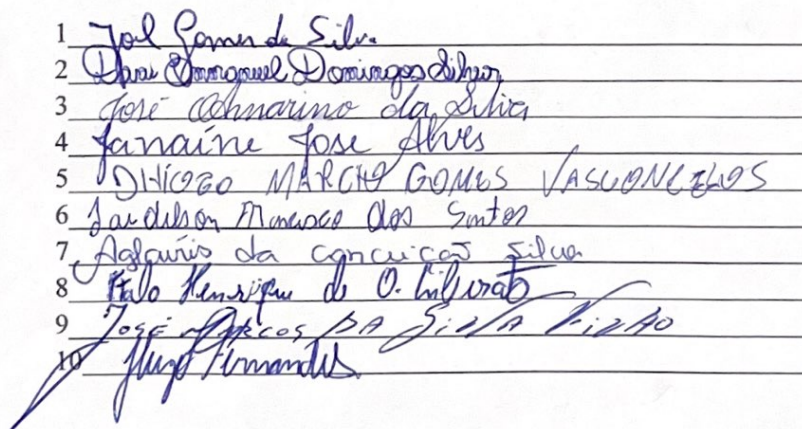 1 Joel Gomes da Silva
2 Davi Emmanuel Domingos Silva
3 José da Silva
4 Janaíne Jose Alves
5 DHIOGO MARCIO GOMES VASCONCELOS
6 Francisco dos Santos
7 da Conceição Silva
8 Italo Henrique de O. Liberato
9 JOSÉ MARCOS DA SILVA
10 Hugo Fernandes